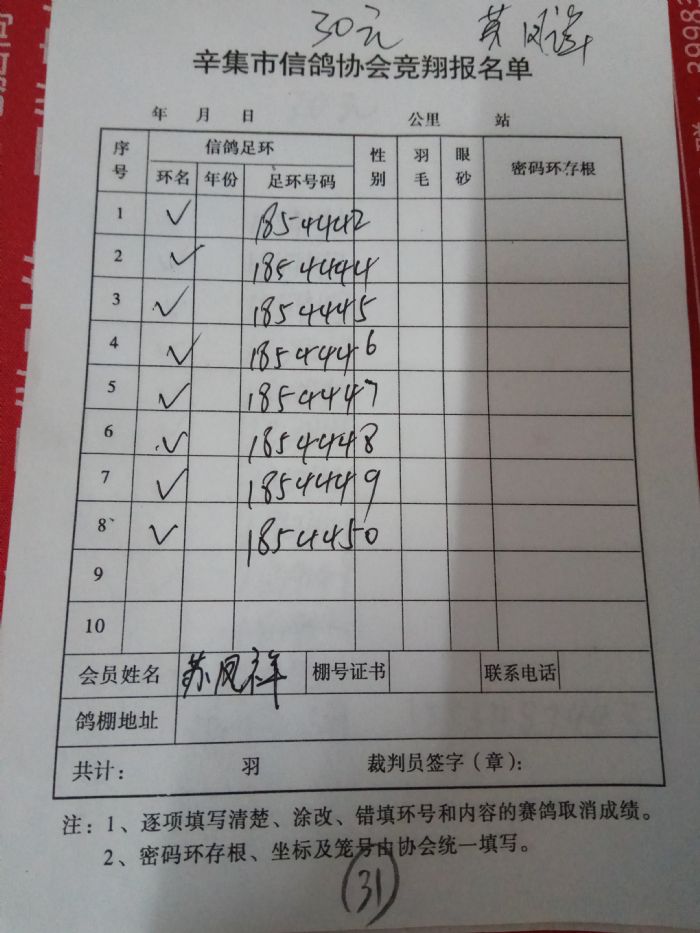 30元
辛集市信鸽协会竞翔报名单
年 月 日 公里 站
序号 信鸽足环 性别 羽毛 眼砂 密码环存根
环名 年份 足环号码
1 ✓ 1854442
2 ✓ 1854444
3 ✓ 1854445
4 ✓ 1854446
5 ✓ 1854447
6 ✓ 1854448
7 ✓ 1854449
8 ✓ 1854450
9
10
会员姓名 苏凤祥 棚号证书 联系电话
鸽棚地址
共计： 羽 裁判员签字（章）：
注：1、逐项填写清楚、涂改、错填环号和内容的赛鸽取消成绩。
2、密码环存根、坐标及笼号由协会统一填写。
31